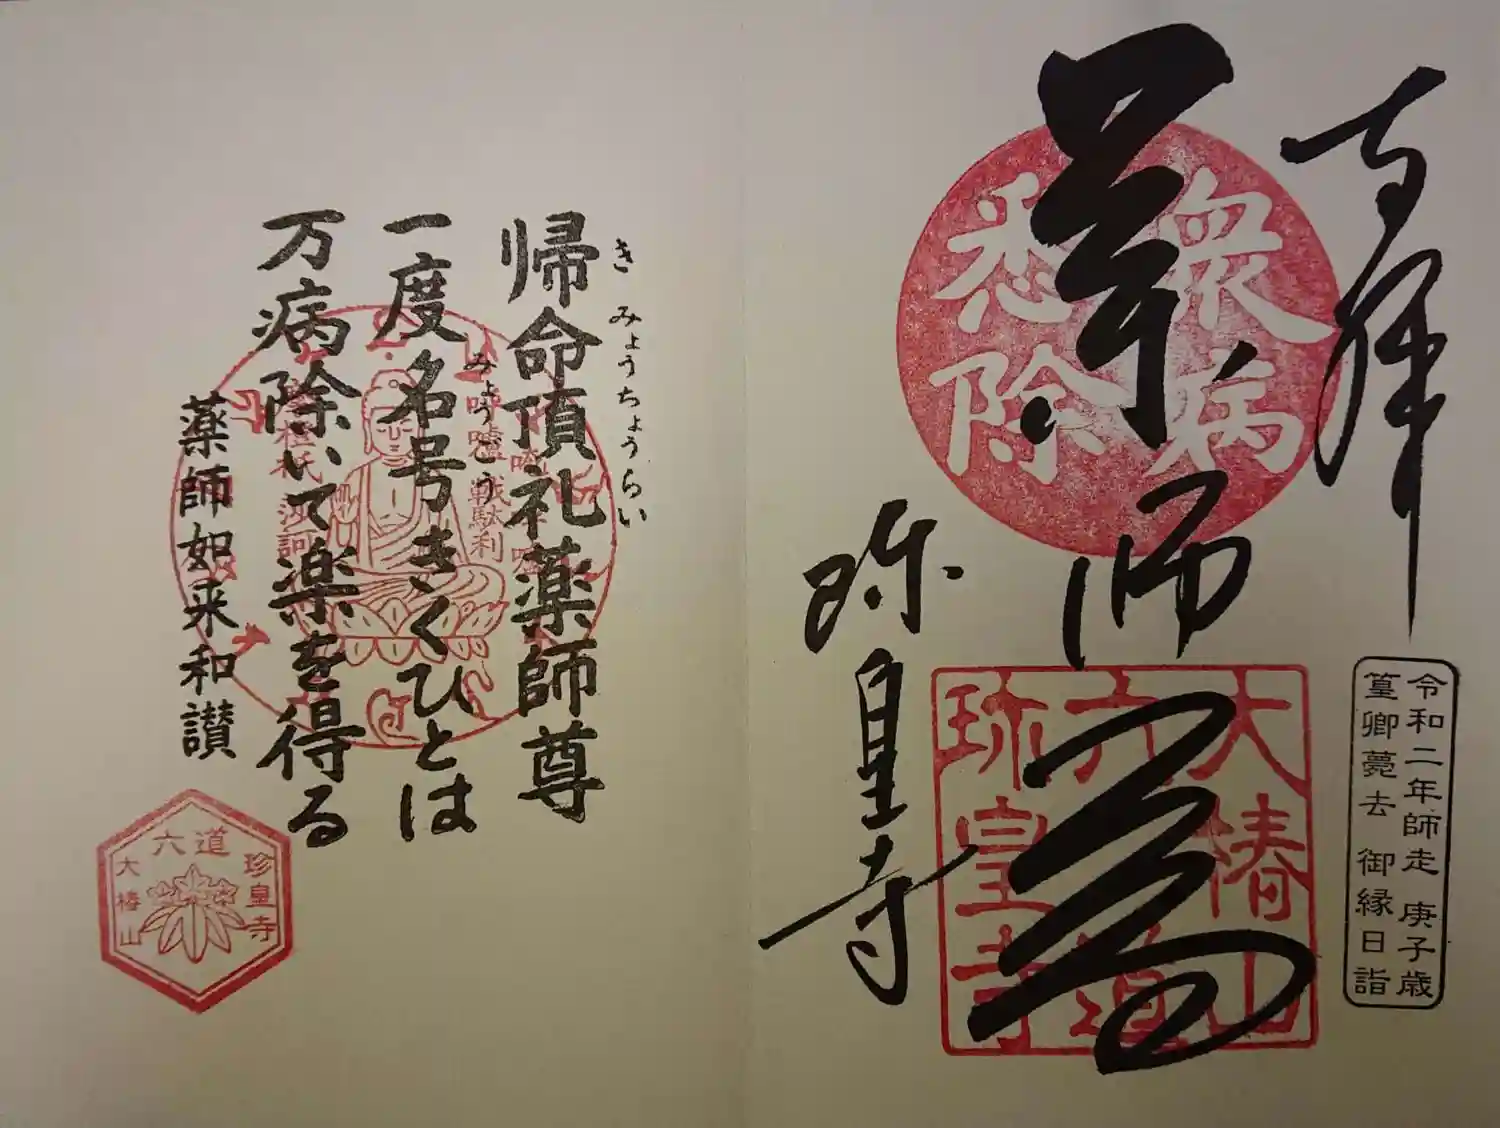 奉拝
令和二年師走 庚子歳
篁卿薨去 御縁日詣
衆病
悉除
薬師尊
大椿山
六道
珍皇寺
珍皇寺
帰命頂礼薬師尊
きみょうちょうらい
一度名号きくひとは
みょうごう
万病除いて楽を得る
薬師如来和讃
六道
珍皇寺
大椿山